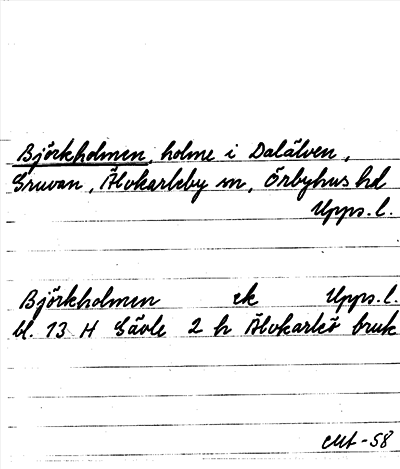 Björkholmen, holme i Dalälven,
Gruvan, Älvkarleby sn, Örbyhus hd
Upps. l.
Björkholmen ek Upps. l.
bl. 13 H Gävle 2 h Älvkarleö bruk
-58